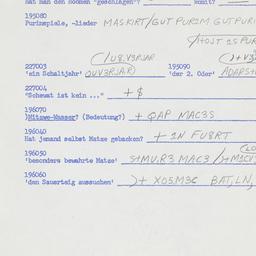 hat man den Hoomen "geschlingn"? womit?
195080
Purimspiele, -lieder MASKIRT/GUT PURIM GUT PURI
/HOJT IS PUR
(/U8.V3RJAR
227003 195090
'ein Schaltjahr' 'der 2. Oder' ADARSH
227004
"Schemat ist kein ..." + $
196070
)Mitzwe-Wasser? (Bedeutung?) + QAP MAC3S
196040
Hat jemand selbst Matze gebacken? + IN FU8RT
196050
'besonders bewahrte Matze' S+MU.R3 MAC3 /S+M1CU
196060
'den Sauerteig aussuchen' )+ XO5.M3C BAT,LN,